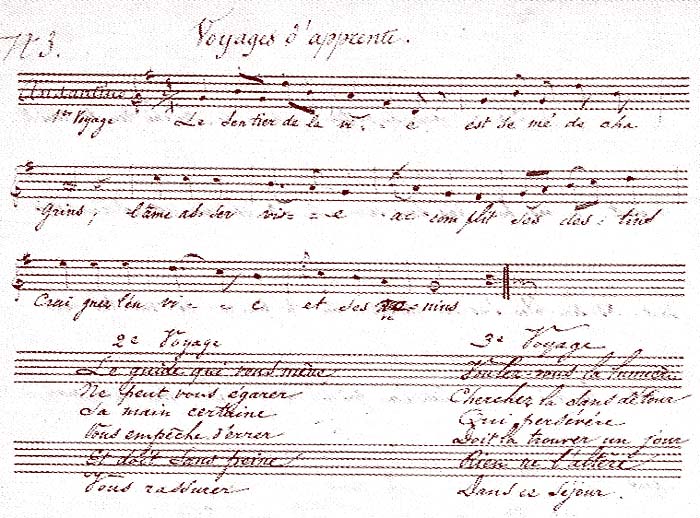 N 3.
Voyages d'apprenti.
Andantino
1er Voyage Le Sentier de la vi - e est se mé de cha
grins, l'âme as ser vi - e ac com plit ses des - tins
Crai gnez l'en vi - e et ses ve - nins
2e Voyage
Le guide qui vous mène
Ne peut vous égarer
Sa main certaine
Vous empêche d'errer
Et doit sans peine
Vous rassurer
3e Voyage
Voulez-vous la lumière
Cherchez la sans détour
Qui persévère
Doit la trouver un jour
Rien ne l'altère
Dans ce Séjour.